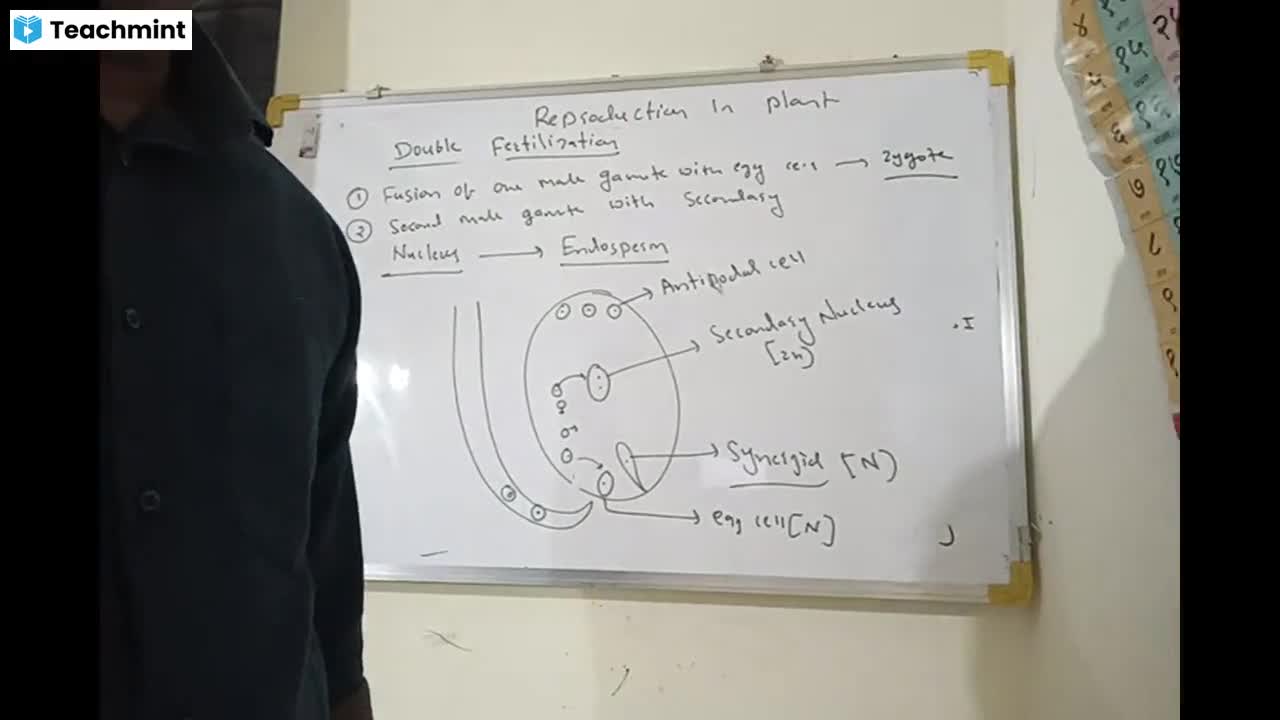 Teachmint
Reproduction In plant
Double Fertilization
① Fusion of one male gamete with egg cell → zygote
② Second male gamete with Secondary
Nucleus → Endosperm
Antipodal cell
Secondary Nucleus
[2n)
Synergid [N)
egg cell [N]